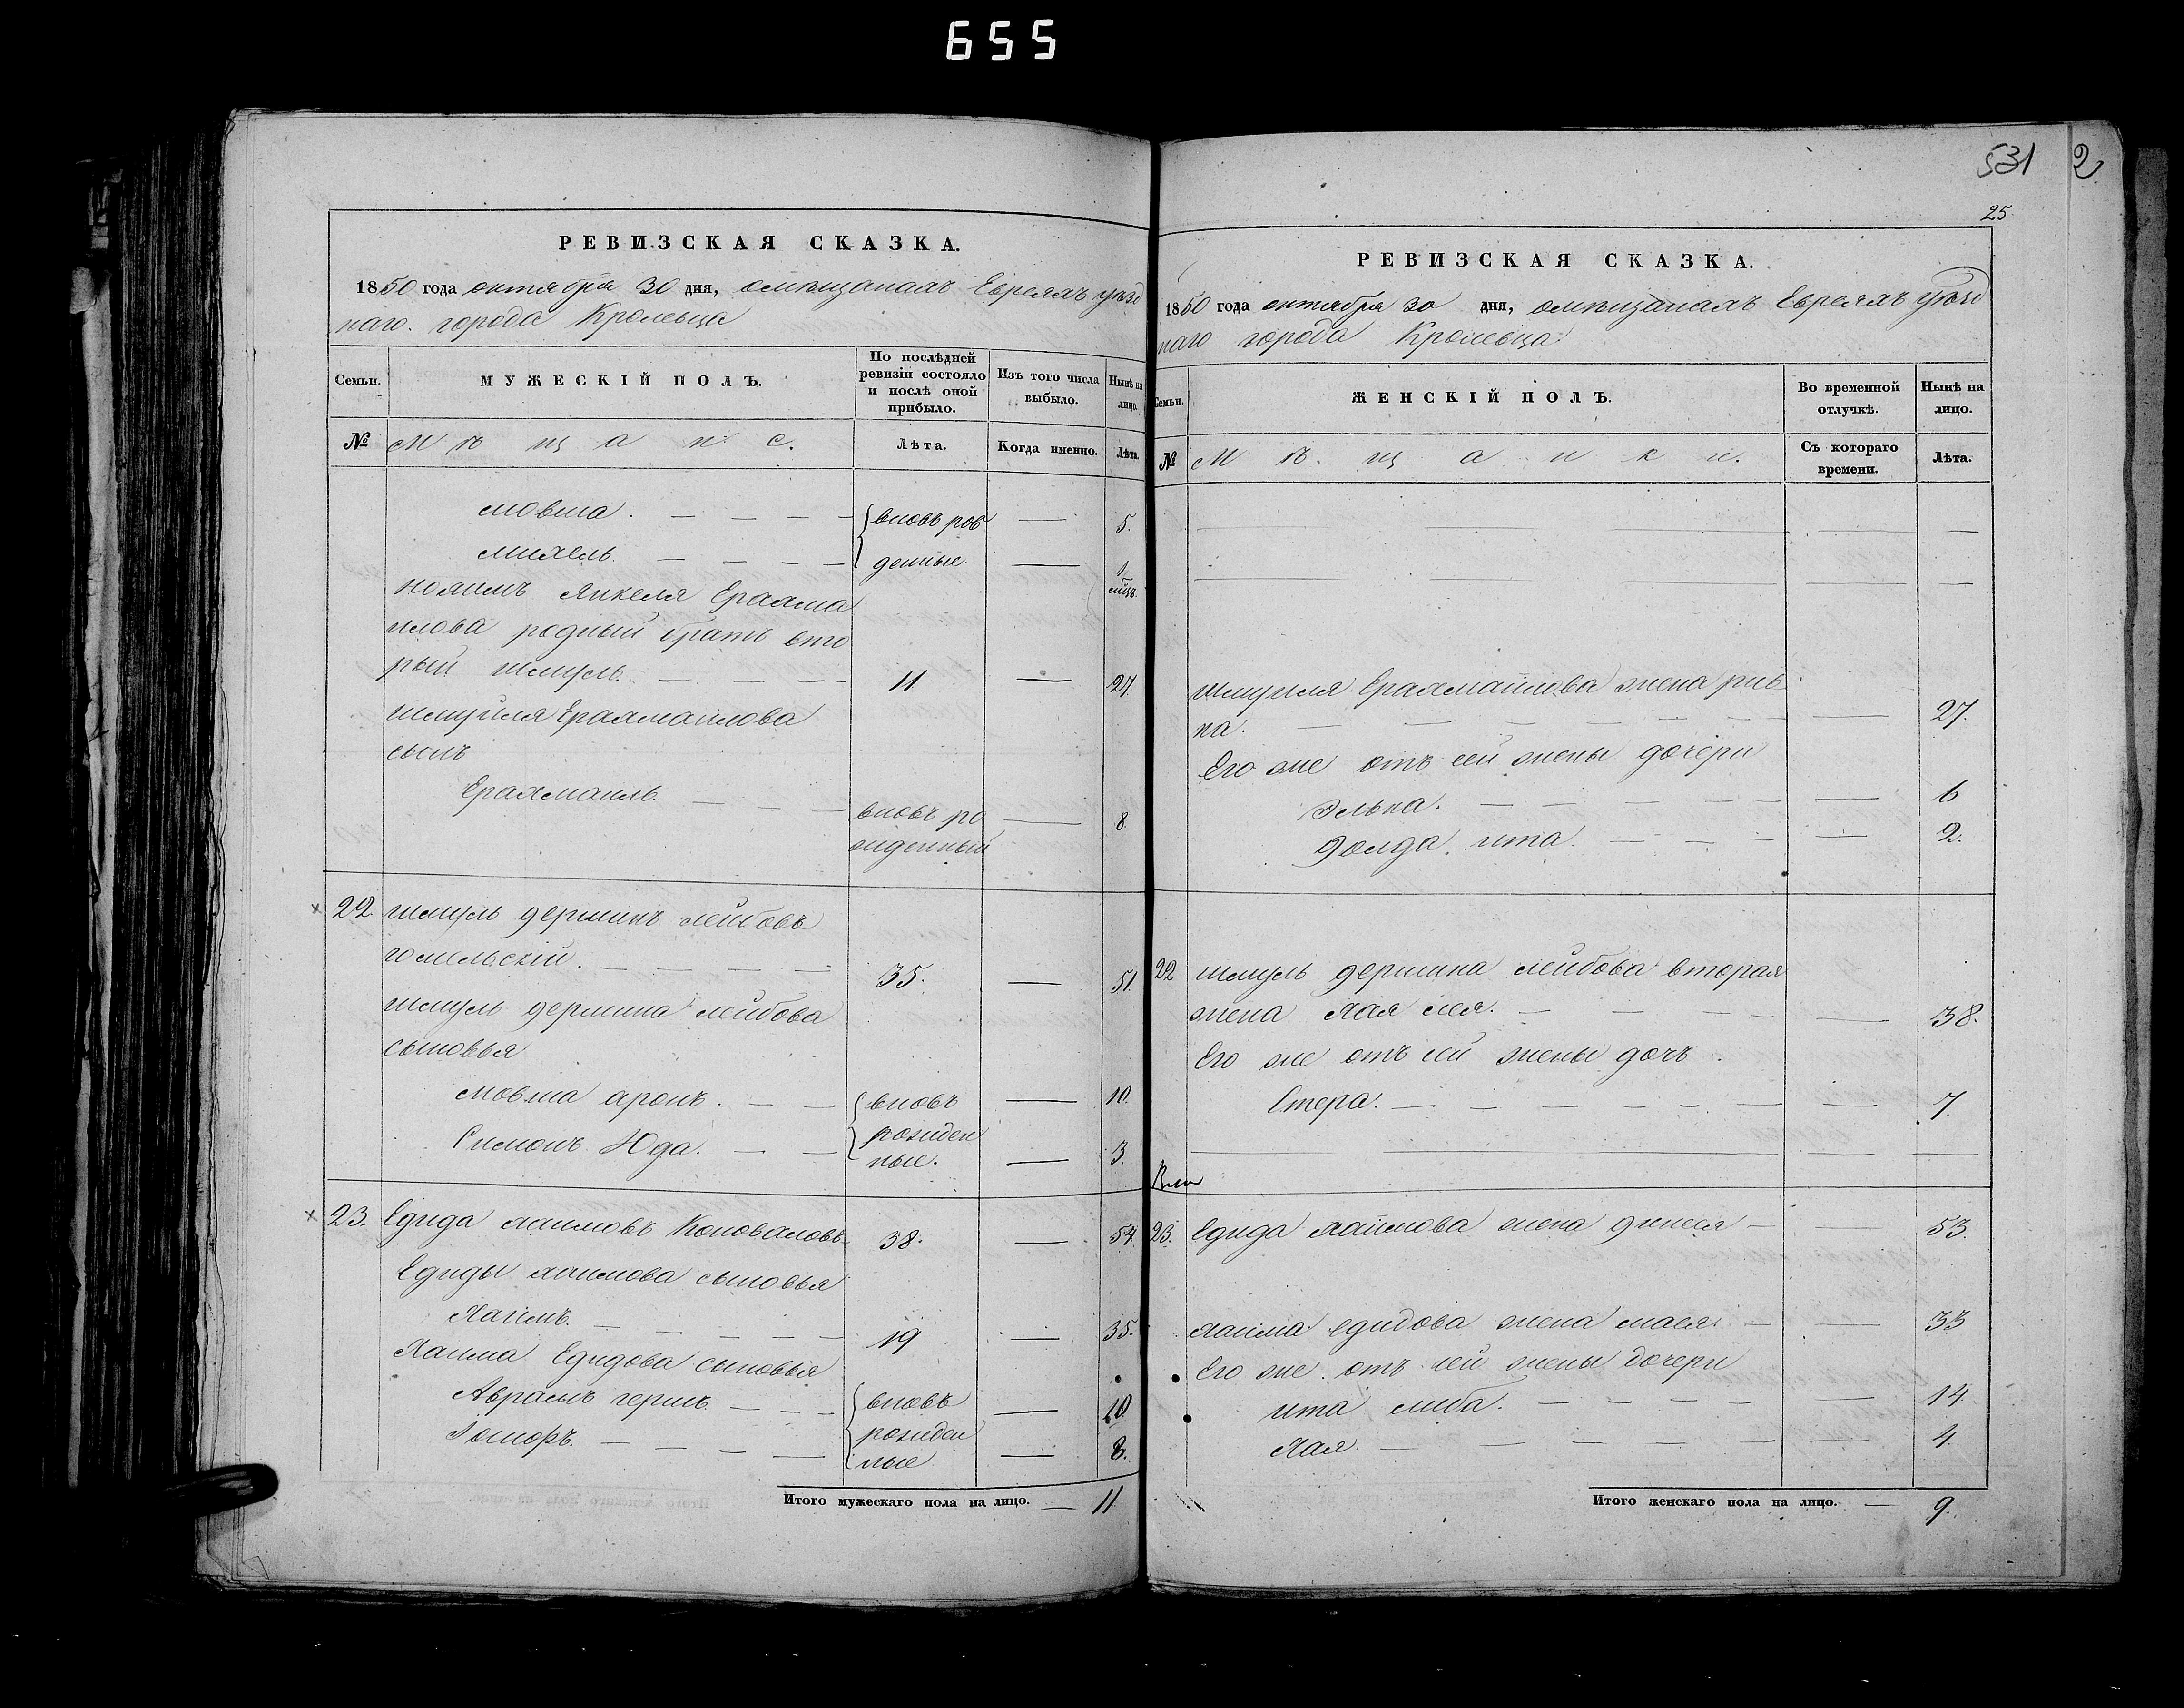 655
РЕВИЗСКАЯ СКАЗКА.
1850 года октября 30 дня, о мѣщанахъ Евреяхъ уѣзд
наго города Кролевца
Семьи.
МУЖЕСКІЙ ПОЛЪ.
По послѣдней
ревизіи состояло
и послѣ оной
прибыло.
Изъ того числа
выбыло.
Нынѣ на
лицо.
№
Мѣщане.
Лѣта.
Когда именно.
Лѣта.
мовша. — — — — вновь рож — 5.
михель. — — — — денные. — 1/
мсцъ.
нохимъ Янкеля Ерахма
илова родный братъ вто
рый шмуль. — — — 11 — 27.
шмуйля Ерахмаилова
сынъ
Ерахмаиль. — — — вновь ро — 8.
жденный
22 шмуль гершинъ лейбовъ
гомельскій. — — — — 35. — 51.
шмуль гершина лейбова
сыновья
мовша аронъ. — — вновь — 10.
Симонъ Юда. — — рожден
ные. — 3.
23. Едида хаимовъ Коноваловъ 38. — 54.
Едиды хаимова сыновья
Хаимъ. — — — — — 19 — 35.
Хаима Едидова сыновья
Авраамъ гершъ. — — — вновь — 10.
рожден
Іосифъ. — — — — ные — 8.
Итого мужескаго пола на лицо. — 11.
531 2
25
РЕВИЗСКАЯ СКАЗКА.
1850 года октября 30 дня, о мѣщанахъ Евреяхъ уѣзд
наго города Кролевца
Семьи.
ЖЕНСКІЙ ПОЛЪ.
Во временной
отлучкѣ.
Нынѣ на
лицо.
№
Мѣщанки.
Съ котораго
времени.
Лѣта.
шмуиля Ерахмаилова жена рив
ка. — — — — — — — — 27.
Его же отъ сей жены дочери
Элька. — — — — — — 6
Голда ита — — — — 2.
22 шмуль гершина лейбова вторая
жена Хая лея. — — — — — 38.
Его же отъ сей жены дочь
Естера. — — — — — — — 7.
23. Едида хаимова жена — — 53.
хаима едидова жена — — 33
Его же отъ сей жены дочери
ита либа. — — — — — 14.
Хая — — — — — — 4.
Итого женскаго пола на лицо. — 9.